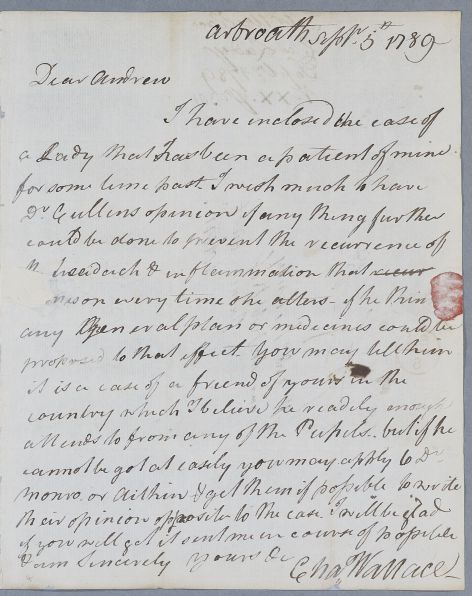 arbroath Sept. 5th 1789
Dear Andrew
I have inclosed the case of
a Lady that has been a patient of mine
for some time past. I wish much to have
Dr Cullens opinion if any thing further
could be done to prevent the recurrence of
headach & inflammation that
on every time she alters if he thin
any general plan or medicines could be
proposed to that effect you may tell him
it is a case of a friend of yours in the
country which I believe he readily enough
attends to from any of the Pupils. but if he
cannot be got at easily you may apply to Dr
Monro, or Aitkin & get them if possible to write
their opinion opposite to the case I will be glad
if you will get it sent me in course if possible
I am Sincerely yours &c
Chas Wallace